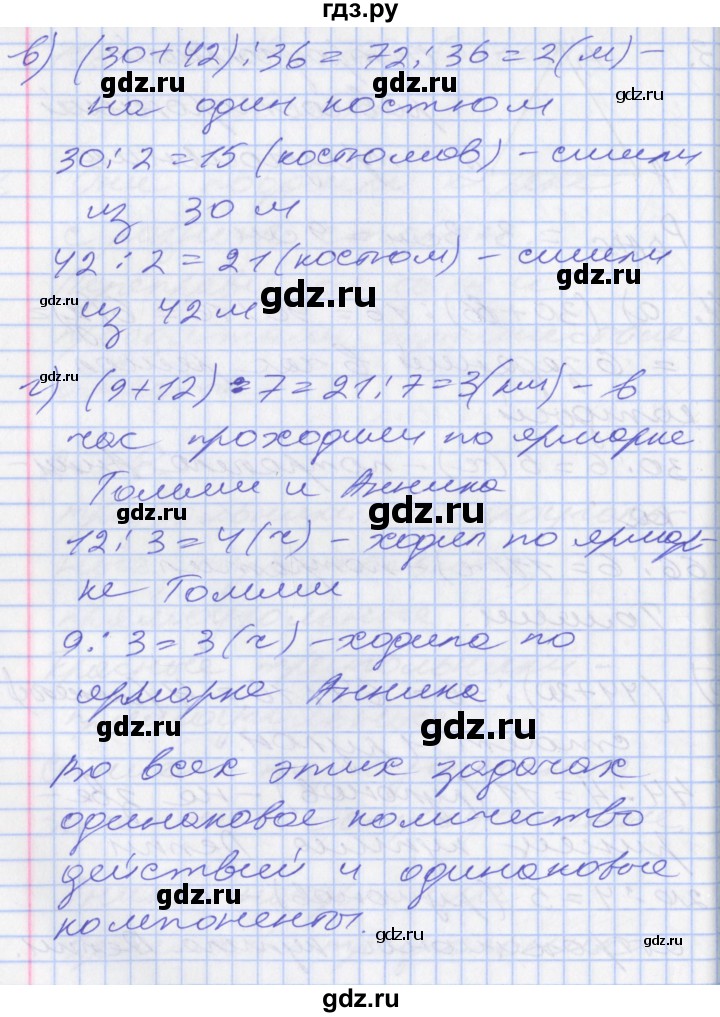 гдз.ру
в) (30+42):36= 72:36=2(м) –
gdz.ru gdz.ru gdz.ru
на один костюм
30:2=15 (костюмов) – сшили
gdz.ru gdz.ru
из 30 м
42:2=21(костюм) – сшили
gdz.ru
gdz.ru gdz.ru
из 42м
gdz.ru
г) (9+12):7=21:7=3(км) – в
час проходили по ярмарке
gdz.ru gdz.ru
Томми и Анника
gdz.ru gdz.ru
12:3=4(ч) – ходил по ярмар-
ке Томми
9:3=3(ч) – ходила по
gdz.ru
ярмарке Анника
gdz.ru gdz.ru
Во всех этих задачах
одинаковое количество
gdz.ru gdz.ru
действий и одинаковые
компоненты.
gdz.ru gdz.ru
gdz.ru